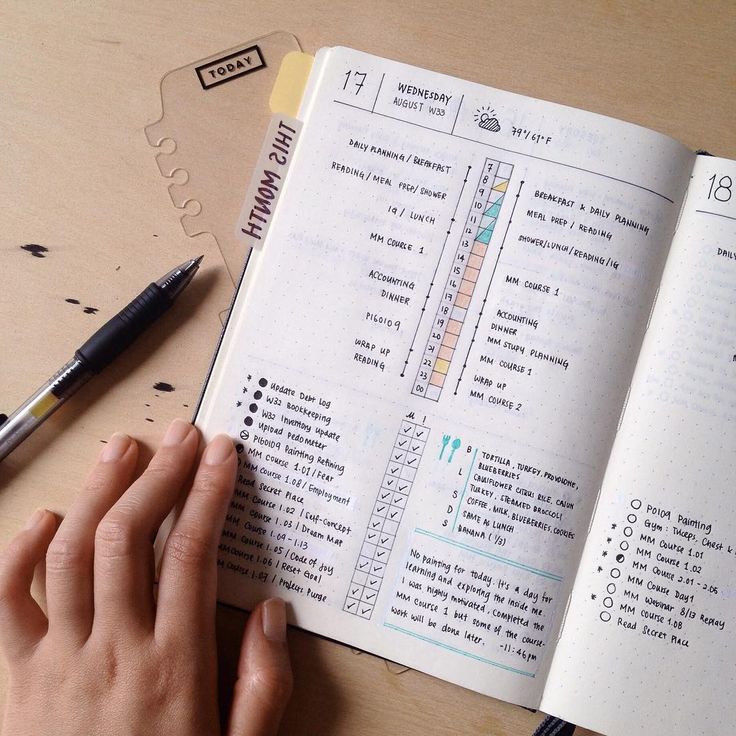 TODAY
THIS MONTH
17
WEDNESDAY
AUGUST W33
79°/61°F
DAILY PLANNING / BREAKFAST
READING / MEAL PREP / SHOWER
IG / LUNCH
MM COURSE 1
ACCOUNTING
DINNER
P160109
WRAP UP
READING
7
8
9
10
11
12
13
14
15
16
17
18
19
20
21
22
23
00
BREAKFAST & DAILY PLANNING
MEAL PREP / READING
SHOWER/LUNCH/READING/IG
MM COURSE 1
ACCOUNTING
DINNER
MM STUDY PLANNING
MM COURSE 1
WRAP UP
MM COURSE 2
Update Debt Log
W32 Bookkeeping
W32 Inventory Update
Upload Pedometer
P160109 Painting Refining
MM Course 1.01 / Fear
MM Course 1.08 / Employment
Read Secret Place
MM Course 1.02 / Self-Concept
MM Course 1.03 / Dream Map
MM Course 1.09 - 1.13
MM Course 1.05 / Code of Joy
MM Course 1.06 / Reset Goal
MM Course 1.07 / Projects Purge
B TORTILLA, TURKEY, PROVOLONE,
BLUEBERRIES
L CAULIFLOWER CITRUS RICE, CAJUN
TURKEY, STEAMED BROCCOLI
S COFFEE, MILK, BLUEBERRIES, COOKIES
D SAME AS LUNCH
S BANANA (1/2)
No painting for today. It's a day for
learning and exploring the inside me.
I was highly motivated, completed the
MM Course 1 but some of the course-
work will be done later. -11:46pm
18
DAILY
Gym: Triceps, Chest &
MM Course 1.01
MM Course 1.02
MM Course 2.01 - 2.05
MM Course Day 1
MM Webinar 8/13 Replay
MM Course 1.08
Read Secret Place